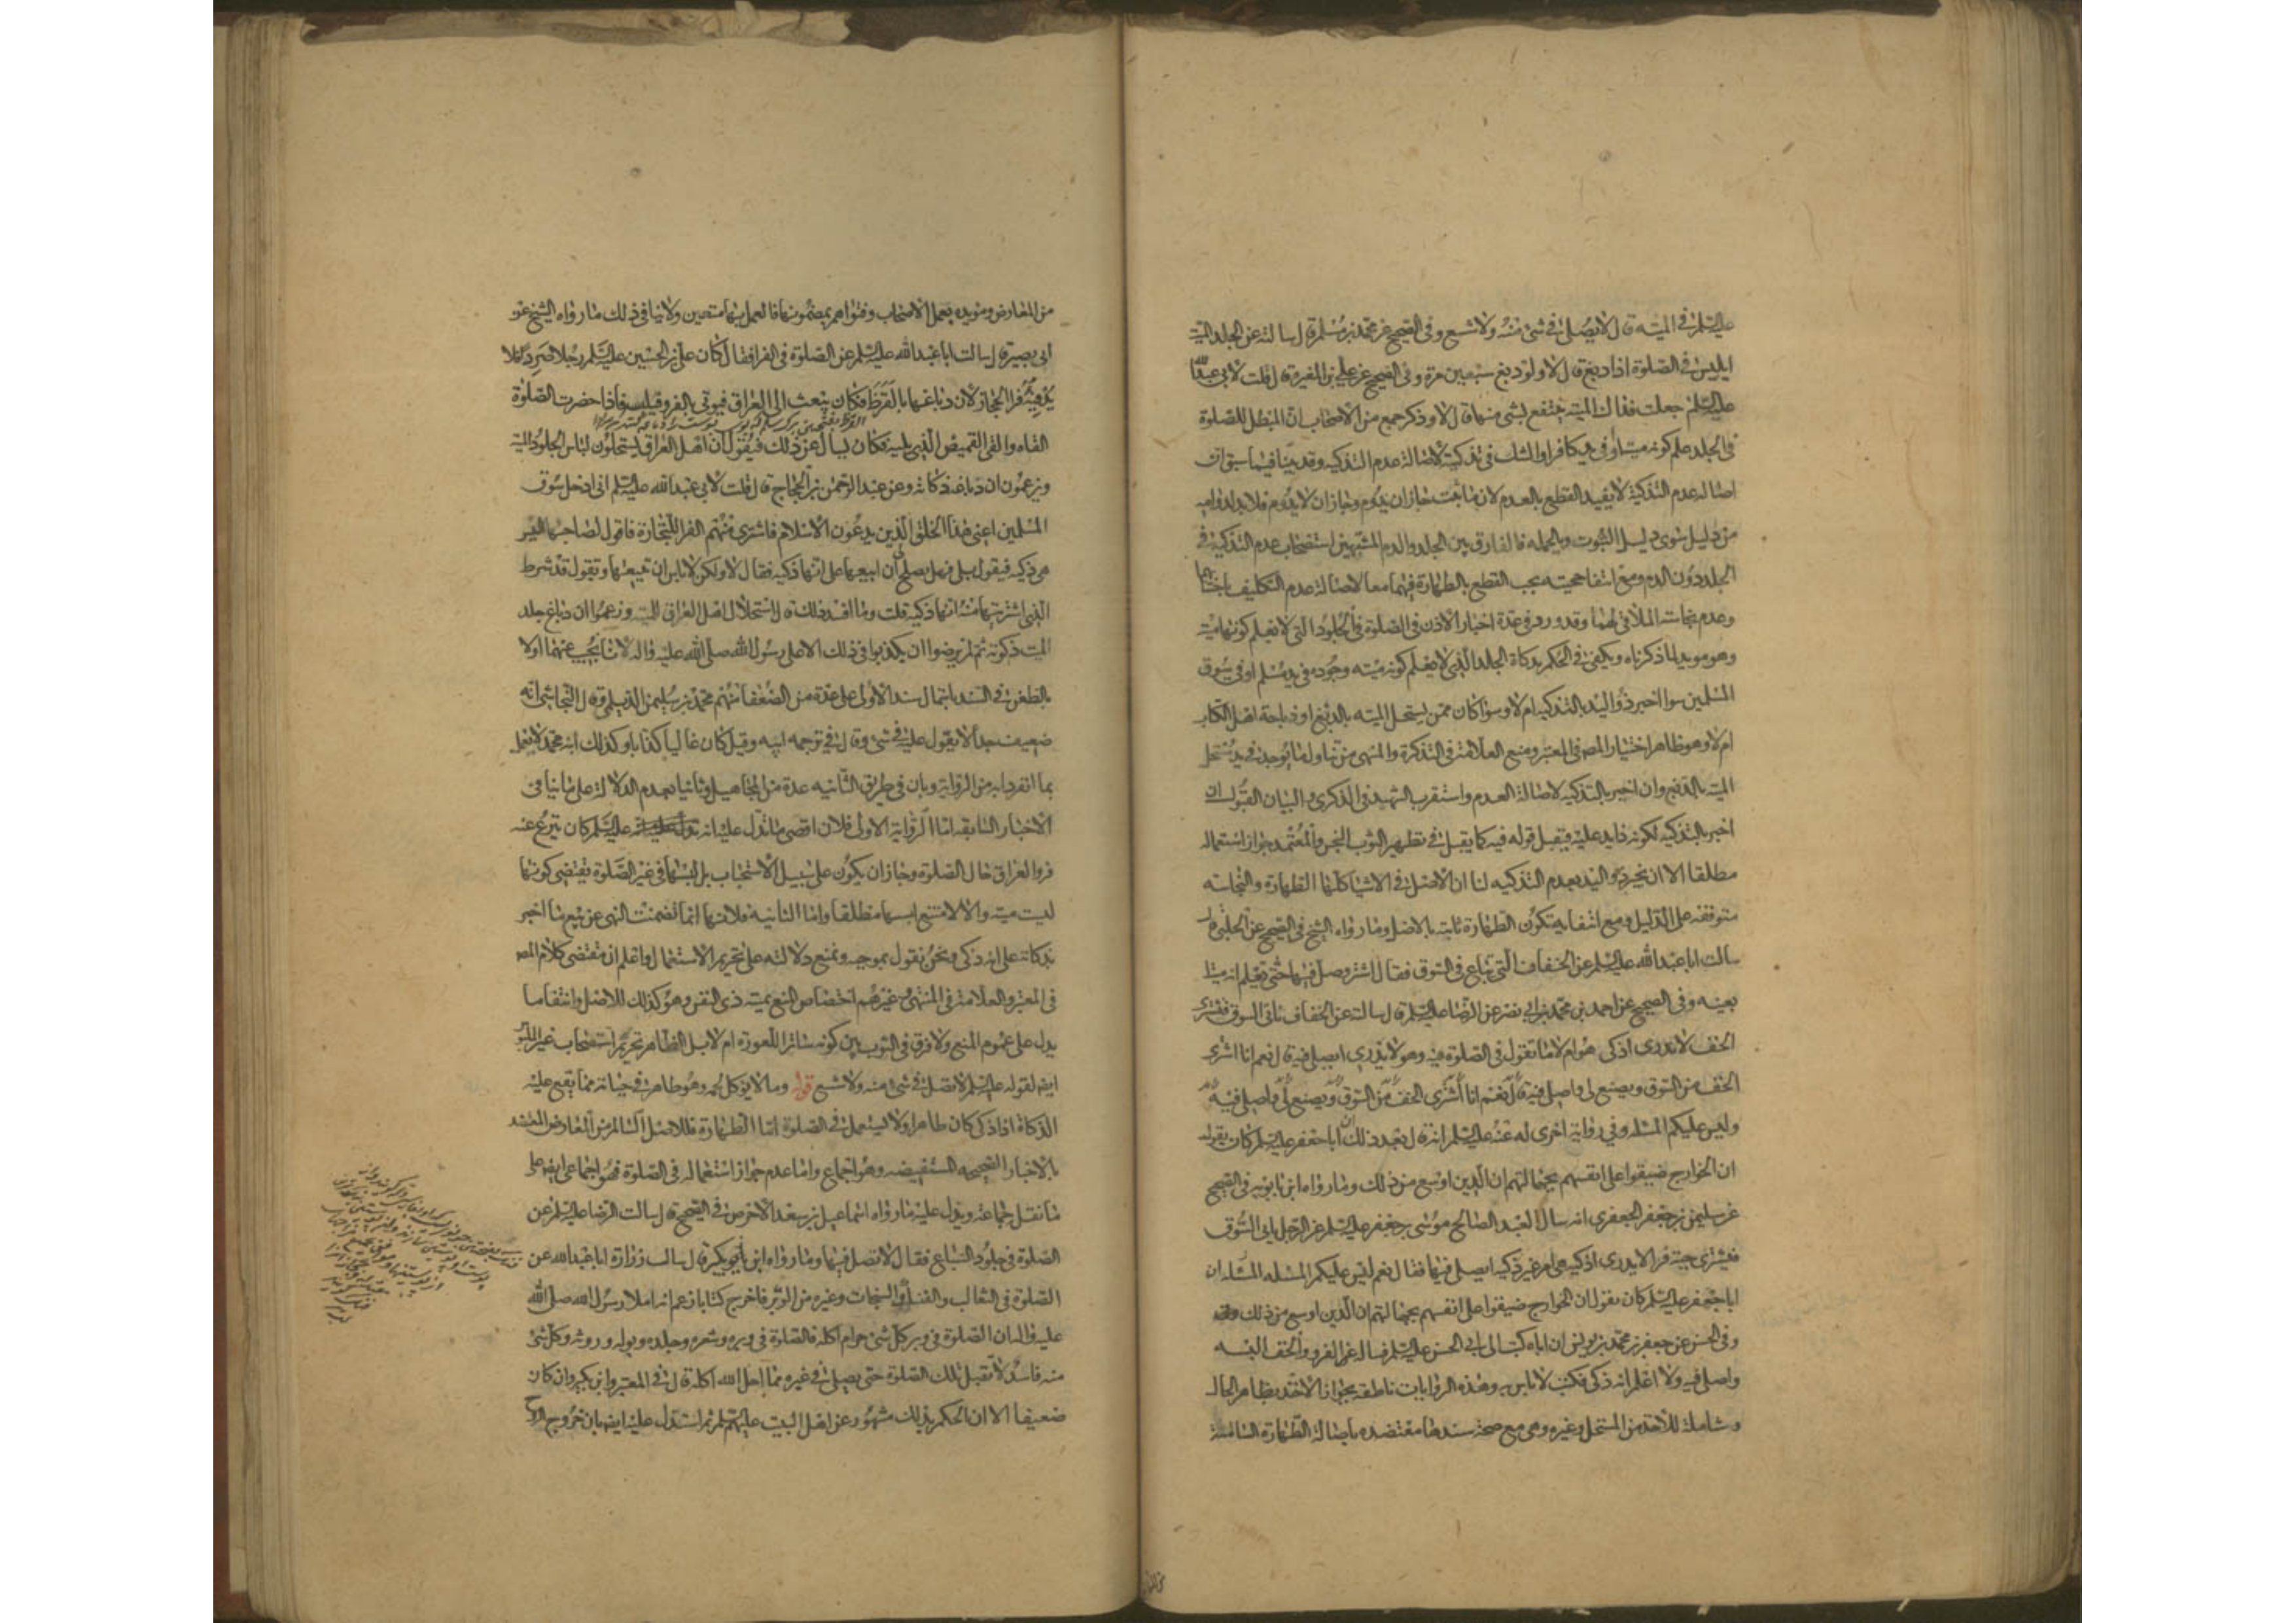 عليه السلم في الميتة قال لا تصل في شئ منه ولا شسع وفي الصحيح عن محمد بن مسلم قال سالته عن الجلد الميت
ايلبس في الصلوة اذا دبغ قال لا ولو دبغ سبعين مرة وفي الصحيح عن علي بن المغيرة قال قلت لابي عبد الله
عليه السلم جعلت فداك الميتة ينتفع بشئ منها قال لا وذكر جمع من الاصحاب ان المبطل للصلوة
في الجلد علم كونه ميتا او في يد كافر او الشك في تذكيته لاصالة عدم التذكية وقد بينا فيما سبق ان
اصالة عدم التذكية لا يفيد القطع بالعدم لان ما ثبت جاز ان يدوم وجاز ان لا يدوم فلا بد لدوامه
من دليل سوى دليل الثبوت وبالجملة فالفارق بين الجلد والدم المشتبهين استصحاب عدم التذكية في
الجلد دون الدم ومع انتفا حجيته يجب القطع بالطهارة فيهما معا لاصالة عدم التكليف باجتنابهما
وعدم نجاسة الملاقي لهما وقد ورد في عدة اخبار الاذن في الصلوة في الجلود التي لا يعلم كونها ميتة
وهو مويد لما ذكرناه ويكفي في الحكم بذكاة الجلد الذي لا يعلم كونه ميتة وجوده في يد مسلم او في سوق
المسلمين سوا اخبر ذو اليد بالتذكية ام لا وسوا كان ممن يستحل الميتة بالدبغ او ذباحة اهل الكتاب
ام لا وهو ظاهر اختيار المصـ في المعتبر ومنع العلامة في التذكرة والمنتهى من تناول ما يوجد في يد مستحل
الميتة بالدبغ وان اخبر بالتذكية لاصالة العدم واستقرب الشهيد في الذكرى والبيان القبول ان
اخبر بالتذكية لكونه ذا يد عليه فيقبل قوله فيه كما يقبل في تطهير الثوب النجس والمعتمد جواز استعماله
مطلقا الا ان يخبر ذو اليد بعدم التذكية لنا ان الاصل في الاشيا كلها الطهارة والنجاسة
متوقفة على الدليل ومع انتفايه تكون الطهارة ثابتة بالاصل وما رواه الشيخ في الصحيح عن الحلبي قال
سالت ابا عبد الله عليه السلم عن الخفاف التي تباع في السوق فقال اشتر وصل فيها حتى تعلم انه ميتا
بعينه وفي الصحيح عن احمد بن محمد بن ابي نصر عن الرضا عليه السلم قال سالته عن الخفاف ناتي السوق فنشترى
الخف لا ندرى اذكى هو ام لا ما تقول في الصلوة فيه وهو لا يدرى ايصلي فيه قال نعم انا اشترى
الخف من السوق ويصنع لي واصلي فيه قال نعم انا اشترى الخف من السوق ويصنع لي واصلي فيه
وليس عليكم المسئلة وفي رواية اخرى له عنه عليه السلم انه قال بعد ذلك ان ابا جعفر عليه السلم كان يقول
ان الخوارج ضيقوا على انفسهم بجهالتهم ان الدين اوسع من ذلك وما رواه ابن بابويه في الصحيح
عن سليمن بن جعفر الجعفري انه سال العبد الصالح موسى بن جعفر عليه السلم عن الرجل ياتي السوق
فيشترى جبة فرا لا يدرى اذكية هي ام غير ذكية ايصلي فيها فقال نعم ليس عليكم المسئلة المسئلة ان
ابا جعفر عليه السلم كان يقول ان الخوارج ضيقوا على انفسهم بجهالتهم ان الدين اوسع من ذلك
وفي الحسن عن جعفر بن محمد بن يونس ان اباه كتب الى ابي الحسن عليه السلم يساله عن الفرو والخف البسه
واصلي فيه ولا اعلم انه ذكى فكتب لا باس به وهذه الروايات ناطقة بجواز الاخذ بظاهر الحال
وشاملة للاخذ من المستحل وغيره وهي مع صحة سندها معتضدة باصالة الطهارة السالمة
من المعارض ومويدة بعمل الاصحاب وفتواهم بمضمونها فالعمل بها متعين ولا ينافي ذلك ما رواه الشيخ عن
ابي بصير قال سالت ابا عبد الله عليه السلم عن الصلوة في الفرا فقال كان علي بن الحسين عليه السلم رجلا صردا فلا
يدفيه فرا الحجاز لان دباغها بالقرظ فكان يبعث الى العراق فيوتى بالفرو فيلبسه فاذا حضرت الصلوة
القاه والقى القميص الذي يليه فكان يسال عن ذلك فيقول ان اهل العراق يستحلون لباس الجلود الميتة
ويزعمون ان دباغه ذكاته وعن عبد الرحمن بن الحجاج قال قلت لابي عبد الله عليه السلم اني ادخل سوق
المسلمين اعنى هذا الخلق الذين يدعون الاسلام فاشترى منهم الفرا للتجارة فاقول لصاحبها اليس
هي ذكية فيقول بلى فهل يصلح ان ابيعها على انها ذكية فقال لا ولكن لا باس ان تبيعها وتقول قد شرط
الذي اشتريتها منه انها ذكية قلت وما افسد ذلك قال استحلال اهل العراق للميتة وزعموا ان دباغ جلد
الميت ذكوته ثم لم يرضوا ان يكذبوا في ذلك الا على رسول الله صلى الله عليه واله لانا نجيب عنهما اولا
بالطعن في السند باشتمال سند الاولى على عدة من الضعفا منهم محمد بن سليمن الديلمي وقال النجاشي انه
ضعيف جدا لا يعول عليه في شئ وقال في ترجمة ابيه وقيل كان غاليا كذابا وكذلك ابنه محمد لا يعمل
بما انفردا به من الرواية وبان في طريق الثانية عدة من المجاهيل وثانيا بعدم الدلالة على ما ينافي
الاخبار السابقة اما الرواية الاولى فلان اقصى ما تدل عليه انه عليه السلم كان ينزع عنه
فرو العراق حال الصلوة وجاز ان يكون على سبيل الاستحباب بل لبسها في غير الصلوة يقتضي كونها
ليست ميتة والا لامتنع لبسها مطلقا واما الثانية فلانها انما تضمنت النهي عن بيع ما اخبر
بذكاته على انه ذكى ونحن نقول بموجبه ونمنع دلالته على تحريم الاستعمال واعلم ان مقتضى كلام المصـ
في المعتبر والعلامة في المنتهى وغيرهم اختصاص المنع بميتة ذى النفس وهو كذلك للاصل وانتفا ما
يدل على عموم المنع ولا فرق في الثوب بين كونه ساترا للعورة ام لا بل الظاهر تحريم استصحاب غير الملبوس
ايضا لقوله عليه السلم لا تصل في شئ منه ولا شسع قوله وما لا يوكل لحمه وهو طاهر في حياته مما يقع عليه
الذكاة اذا ذكى كان طاهرا ولا يستعمل في الصلوة اما الطهارة فللاصل السالم من المعارض المعتضد
بالاخبار الصحيحة المستفيضة وهو اجماع واما عدم جواز استعماله في الصلوة فهو اجماعي ايضا على
ما نقل جماعة ويدل عليه ما رواه اسماعيل بن سعد الاحوص في الصحيح قال سالت الرضا عليه السلم عن
الصلوة في جلود السباع فقال لا تصل فيها وما رواه ابن بكير قال سال زرارة ابا عبد الله عن
الصلوة في الثعالب والفنك والسنجاب وغيره من الوبر فاخرج كتابا زعم انه املا رسول الله صلى الله
عليه واله ان الصلوة في وبر كل شئ حرام اكله فالصلوة في وبره وشعره وجلده وبوله وروثه وكل شئ
منه فاسد لا تقبل تلك الصلوة حتى يصلي في غيره مما احل الله اكله قال في المعتبر وابن بكير وان كان
ضعيفا الا ان الحكم بذلك مشهور عن اهل البيت عليهم السلم ثم استدل عليه ايضا بان خروج الروح